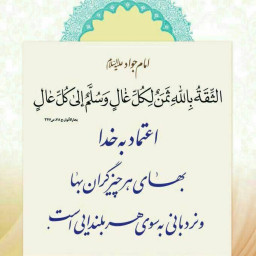 امام جواد علیه‌السلام
الثِّقَةُ بِاللهِ ثَمَنٌ لِكُلِّ غَالٍ وَسُلَّمٌ إِلىٰ كُلِّ عَالٍ
اعتماد به خدا
بهای هر چیز گران بها
و نردبانی به سوی هر بلندایی است